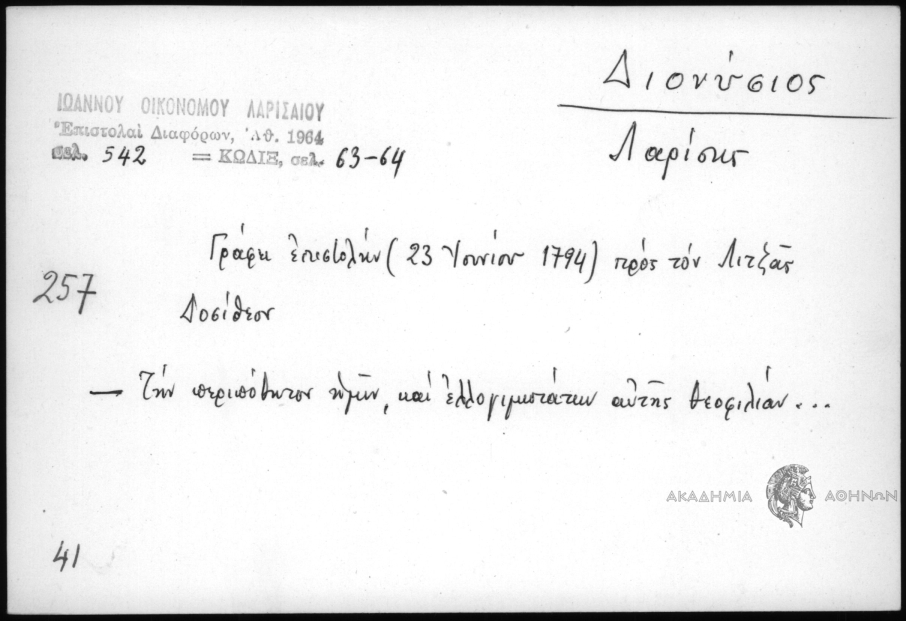 Διονύσιος
Λαρίσης
ΙΩΑΝΝΟΥ ΟΙΚΟΝΟΜΟΥ ΛΑΡΙΣΑΙΟΥ
Ἐπιστολαὶ Διαφόρων, Ἀθ. 1964
σελ. 542 = ΚΩΔΙΞ, σελ. 63-64
Γράφει ἐπιστολήν (23 Ἰουνίου 1794) πρός τόν Λιτζᾶς
257
Δοσίθεον
— Τήν περιπόθητον ἡμῖν, καί ἐλλογιμωτάτην αὐτῆς θεοφιλίαν...
ΑΚΑΔΗΜΙΑ ΑΘΗΝΩΝ
41